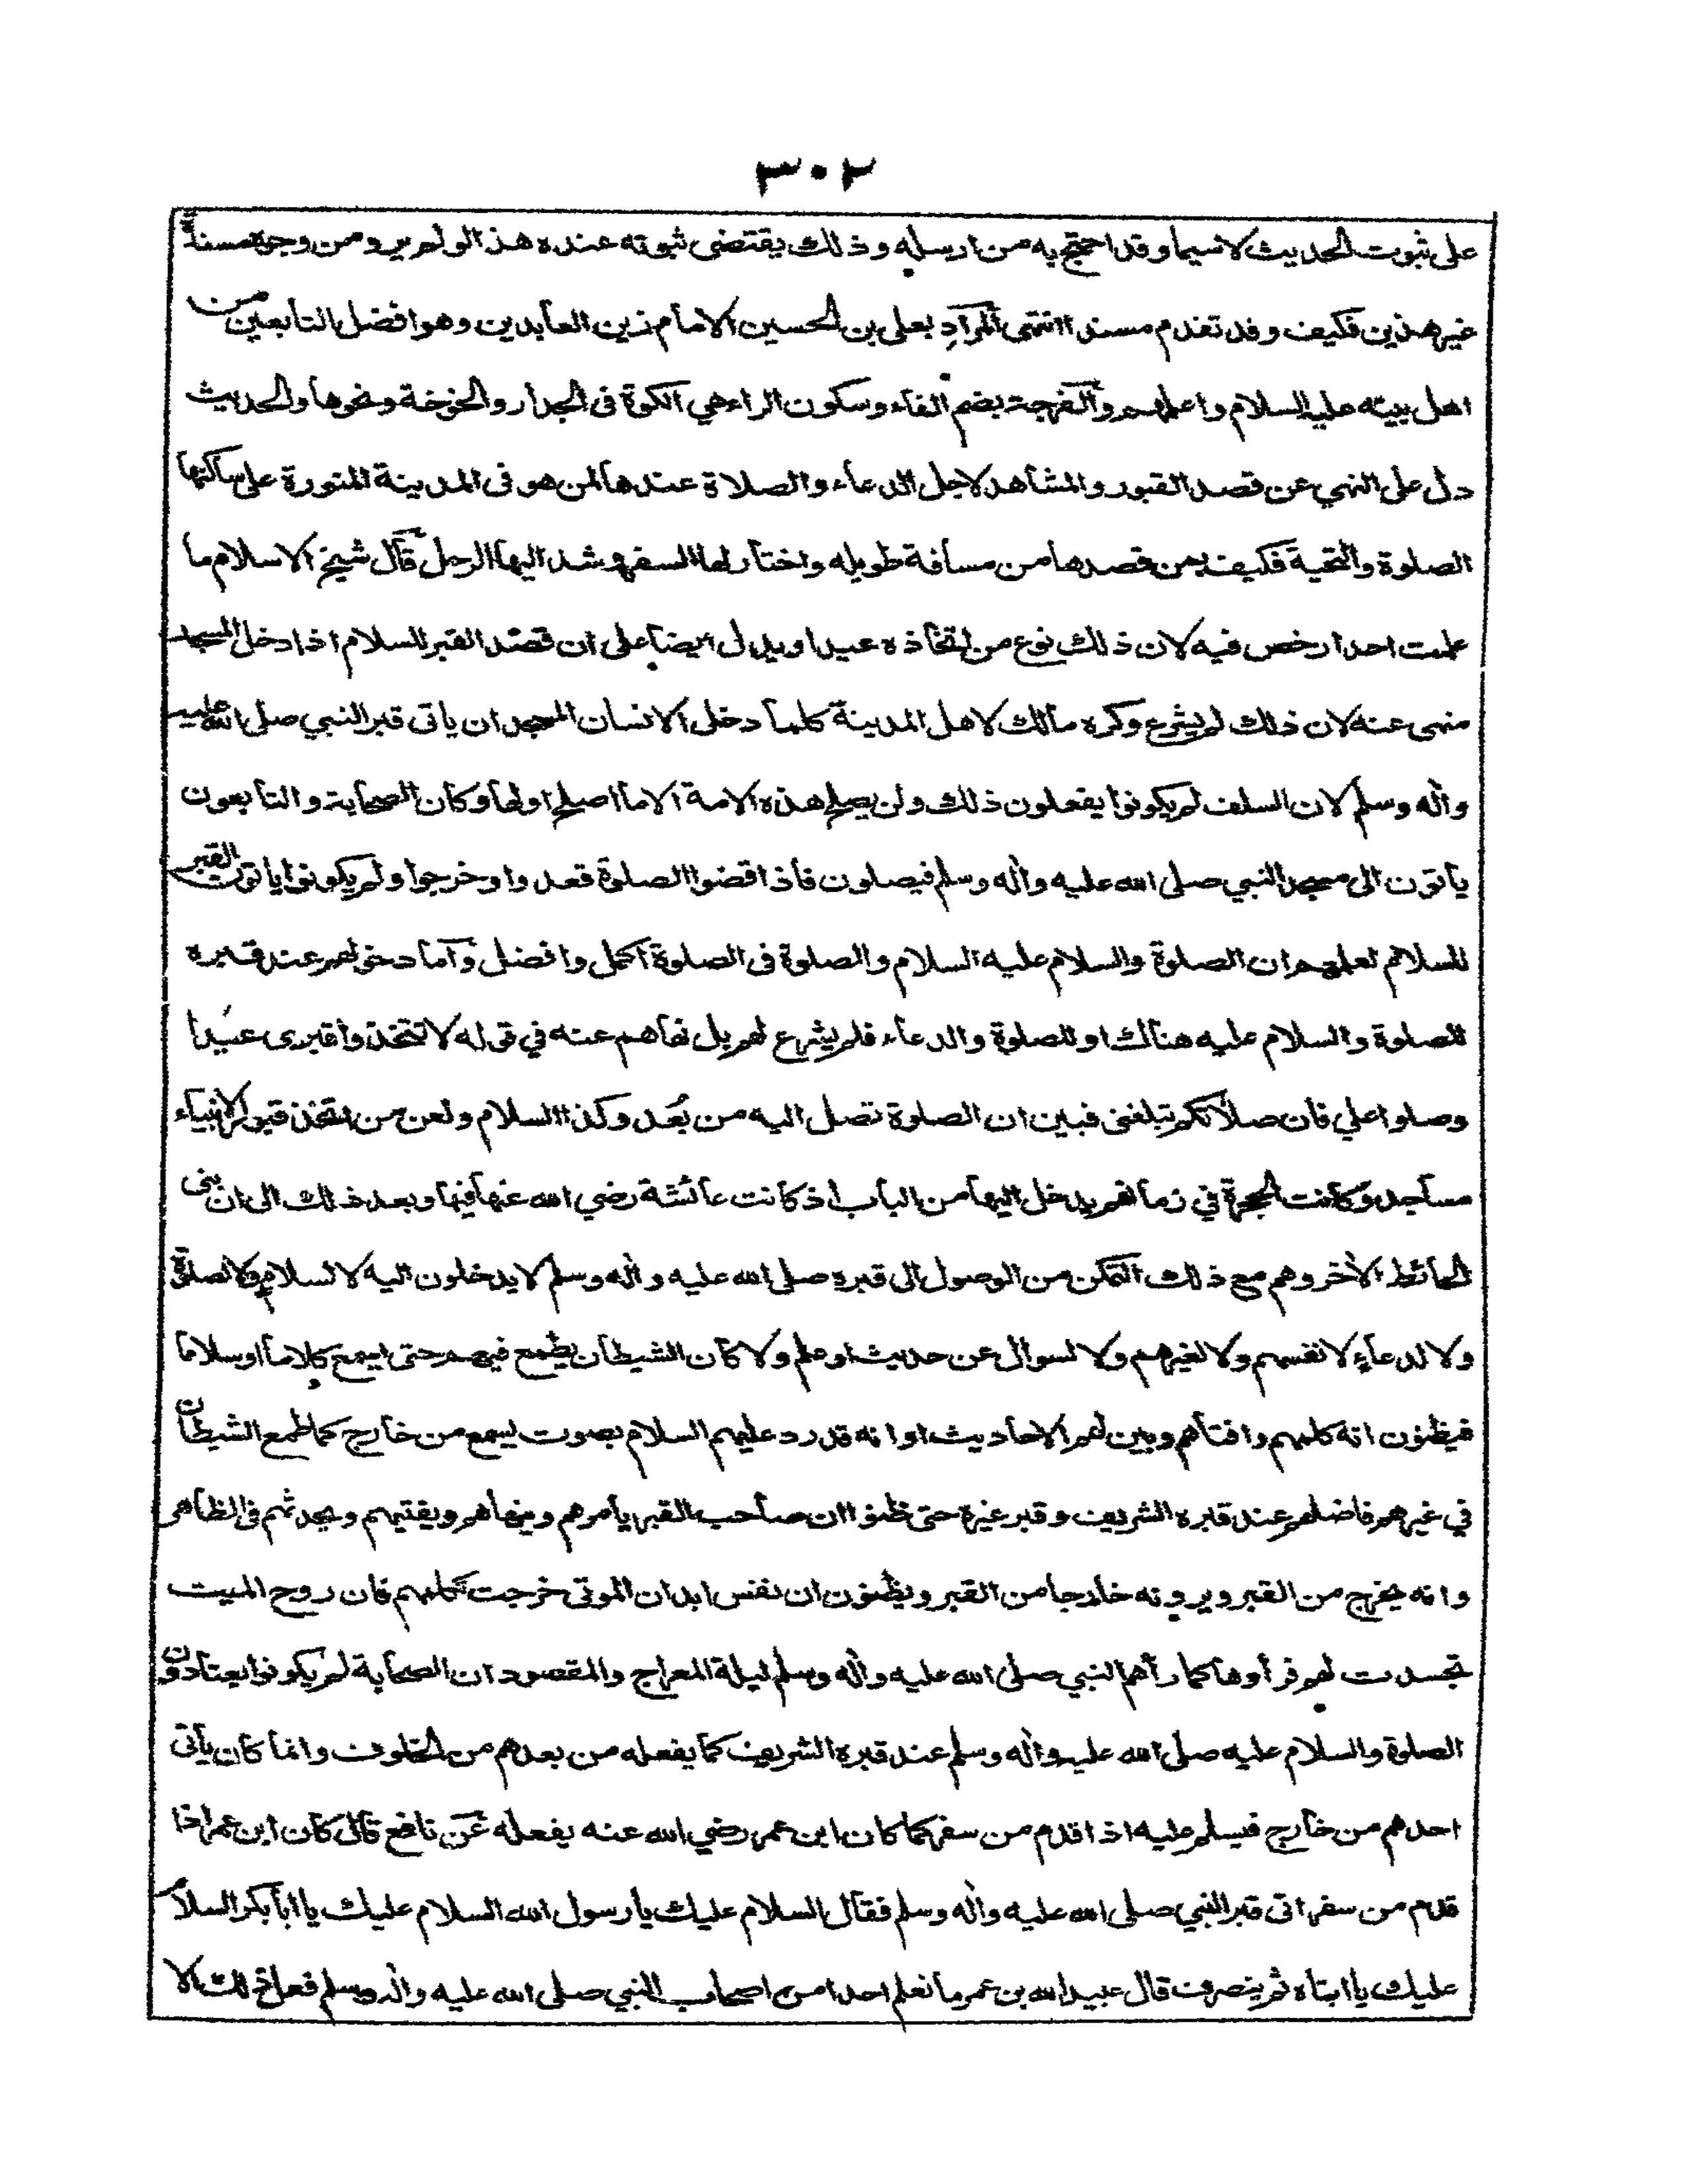 ٣٠٢
على ثبوت الحديث لاسيما وقد احتج به من ارسله وذلك يقتضى ثبوته عنده هذا لو لم يرو من وجوه مسندة
غير هذين فكيف وقد تقدم مسندا انتهى المراد بعلى بن الحسين الامام زين العابدين وهو افضل التابعين من
اهل بيته عليه السلام واعلمهم والفرجة بضم الفاء وسكون الراء هي الكوة فى الجدار والخوخة ونحوها والحديث
دل على النهي عن قصد القبور والمشاهد لاجل الدعاء والصلاة عندها لمن هو فى المدينة المنورة على ساكنها
الصلوة والتحية فكيف بمن قصدها من مسافة طويله واختار لها السفر وشد اليها الرحل قال شيخ الاسلام ما
علمت احدا رخص فيه لان ذلك نوع من اتخاذه عيدا ويدل ايضا على ان قصد القبر للسلام اذا دخل المسجد
منهى عنه لان ذلك لم يشرع وكره مالك لاهل المدينة كلما دخل الانسان المسجد ان ياتى قبر النبي صلى الله عليه
واٰله وسلم لان السلف لم يكونوا يفعلون ذلك ولن يصلح هذه الامة الا ما اصلح اولها وكان الصحابة والتابعون
يأتون الى مسجد النبي صلى الله عليه واٰله وسلم فيصلون فاذا قضوا الصلوة قعدوا وخرجوا ولم يكونوا ياتون القبر
للسلام لعلمهم ان الصلوة والسلام عليه السلام والصلوة فى الصلوة اكمل وافضل وأما دخولهم عند قبره
للصلوة والسلام عليه هنالك او للصلوة والدعاء فلم يشرع لهم بل نهاهم عنه في قوله لا تتخذوا قبرى عيدا
وصلوا علي فان صلاتكم تبلغنى فبين ان الصلوة تصل اليه من بُعد وكذا السلام ولعن من اتخذ قبور الانبياء
مساجد وكانت الحجرة في زمانهم يدخل اليها من الباب اذ كانت عائشة رضي الله عنها فيها وبعد ذلك الى ان بنى
الحائط الاٰخر وهم مع ذلك التمكن من الوصول الى قبره صلى الله عليه واٰله وسلم لا يدخلون اليه لا لسلام ولا لصلوة
ولا لدعاء لانفسهم ولا لغيرهم ولا لسوال عن حديث او علم ولا كان الشيطان يطمع فيهم حتى يسمع كلاما او سلاما
فيظنون انه كلمهم وافتاهم وبين لهم الاحاديث او انه قد رد عليهم السلام بصوت يسمع من خارج كما طمع الشيطان
في غيرهم فاضلهم عند قبره الشريف وقبر غيره حتى ظنوا ان صاحب القبر يأمرهم وينهاهم ويفتيهم ويحدثهم فى الظاهر
وانه يخرج من القبر ويرونه خارجا من القبر ويظنون ان نفس ابدان الموتى خرجت تكلمهم فان روح الميت
تجسدت لهم فرأوها كما رأهم النبي صلى الله عليه واٰله وسلم ليلة المعراج والمقصود ان الصحابة لم يكونوا يعتادون
الصلوة والسلام عليه صلى الله عليه واٰله وسلم عند قبره الشريف كما يفعله من بعدهم من الخلوف وانما كان يأتى
احدهم من خارج فيسلم عليه اذا قدم من سفر كما كان ابن عمر رضي الله عنه يفعله عن نافع قال كان ابن عمر اذا
قدم من سفر اتى قبر النبي صلى الله عليه واٰله وسلم فقال السلام عليك يا رسول الله السلام عليك يا ابا بكر السلام
عليك يا ابتاه ثم ينصرف قال عبيد الله بن عمر ما نعلم احدا من اصحاب النبي صلى الله عليه واٰله وسلم فعل ذلك الا